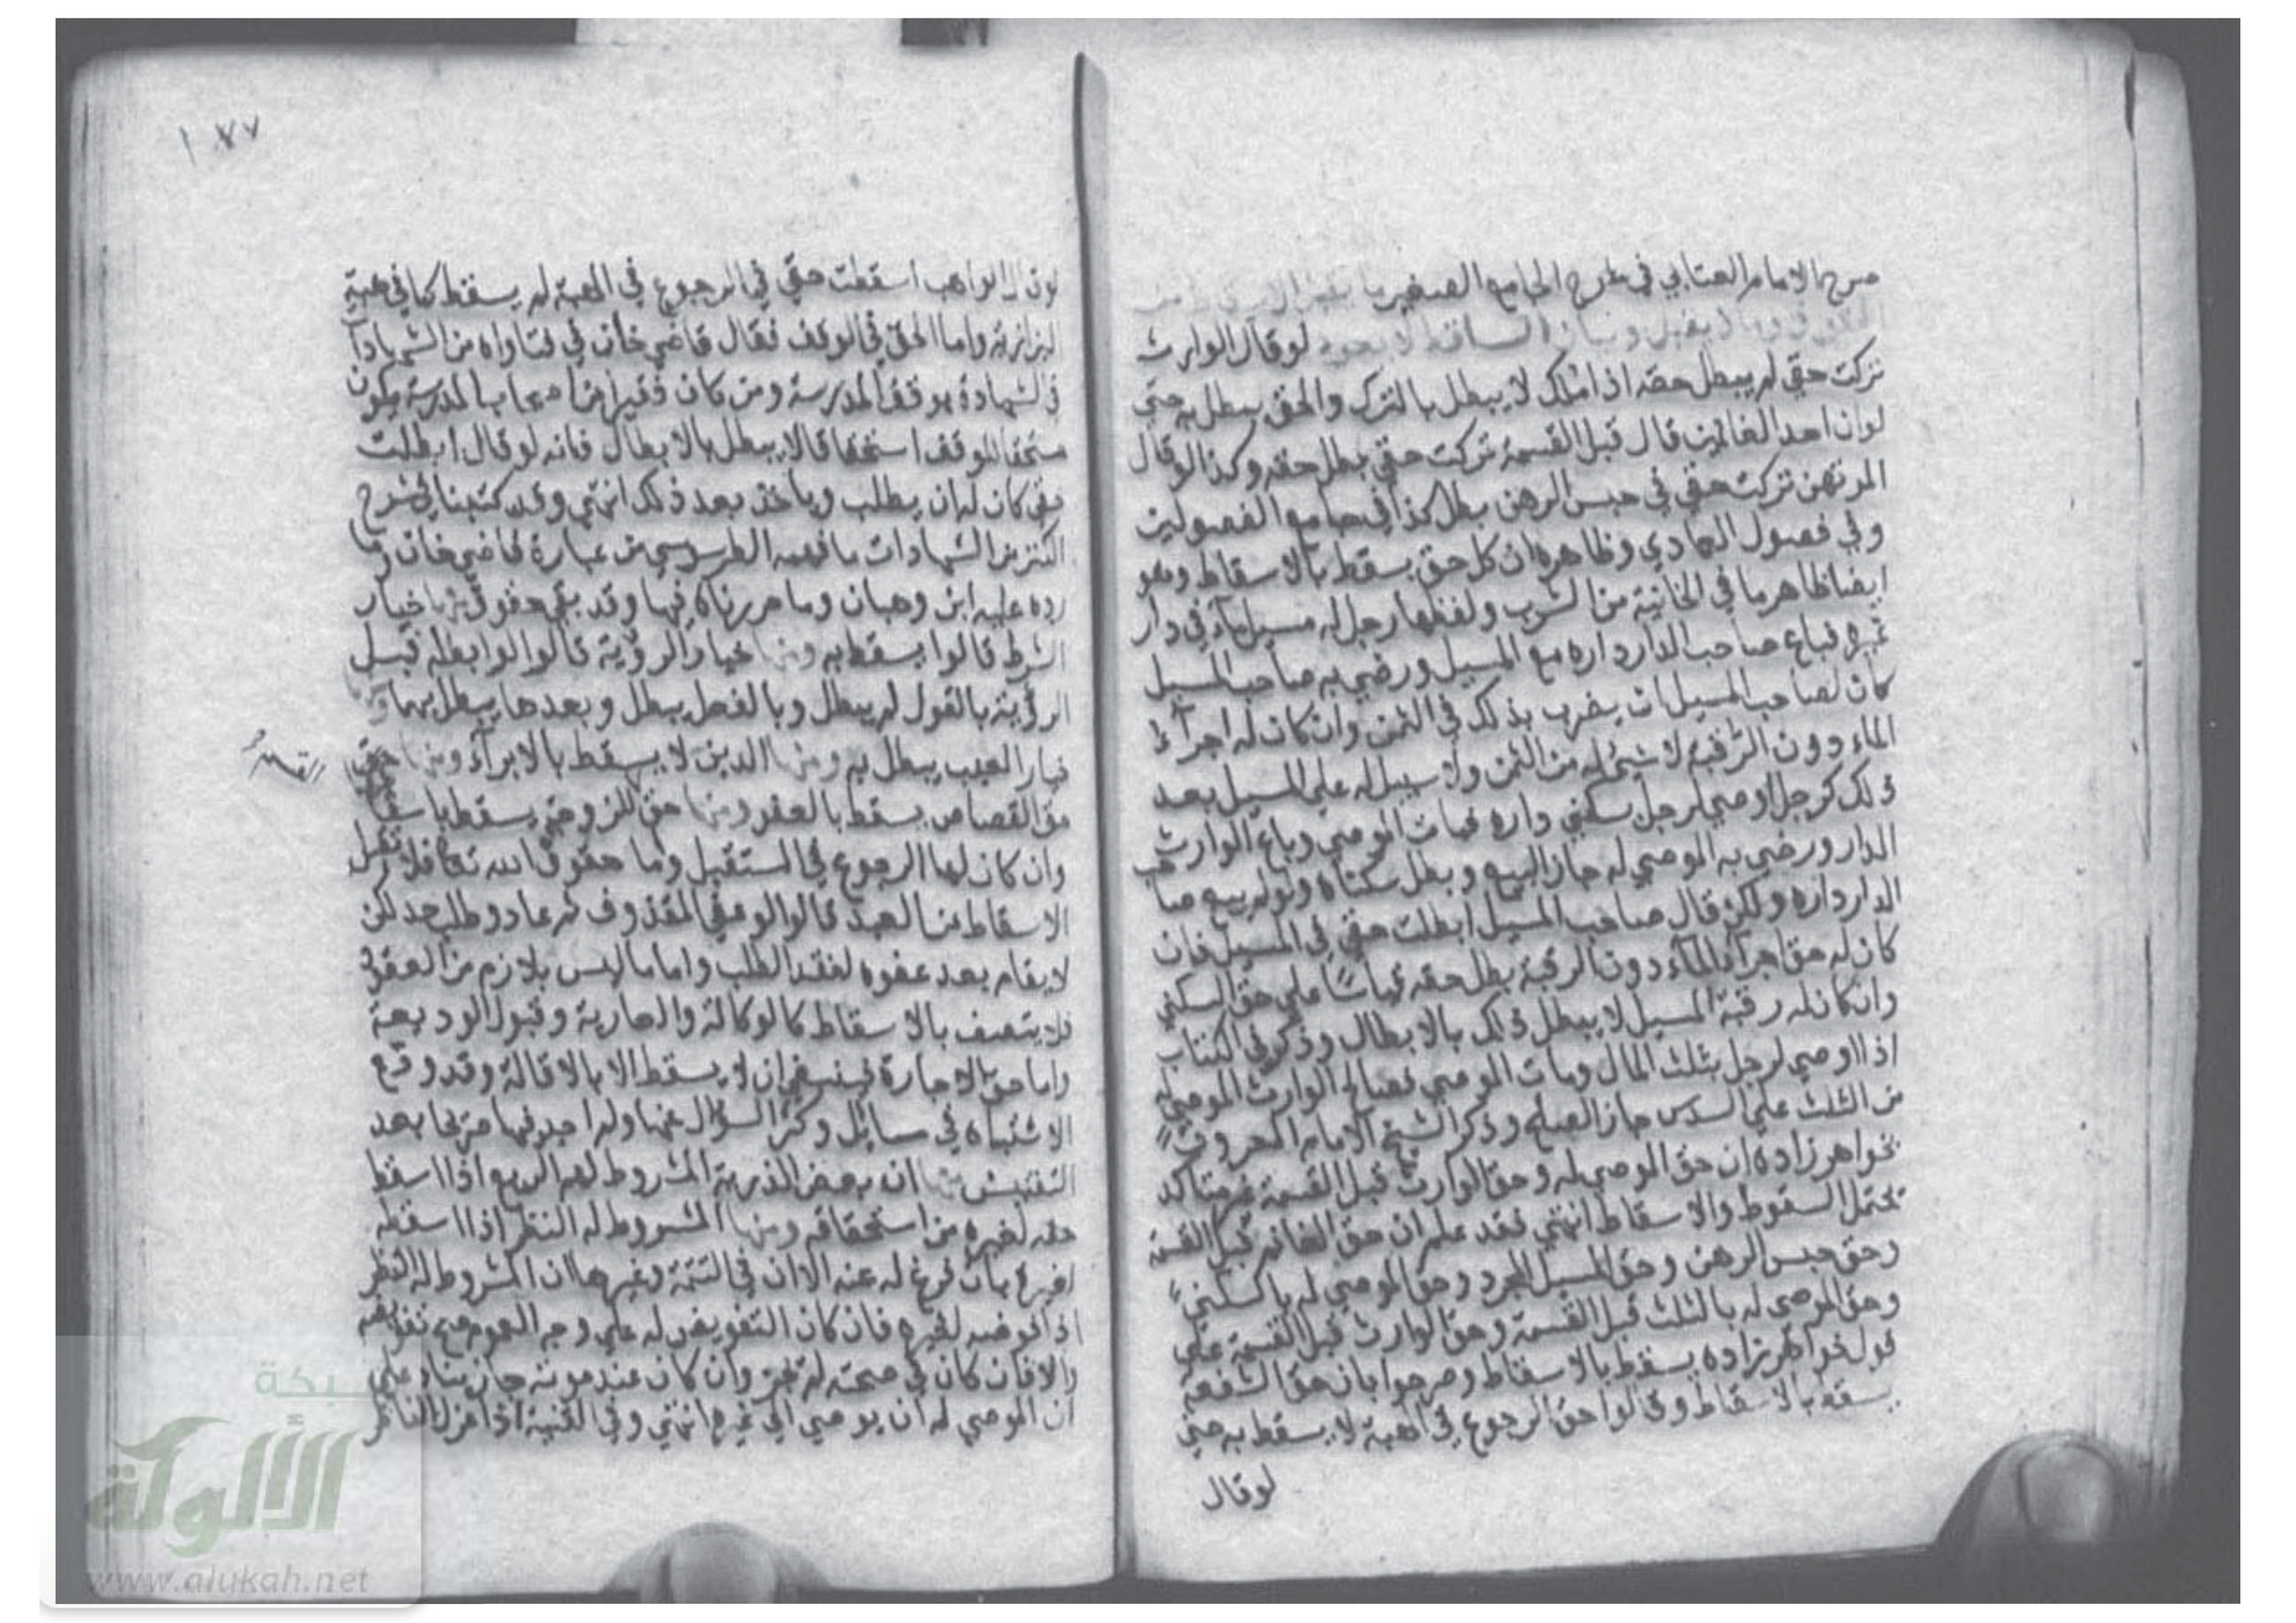 صرح به الامام العتابي في شرح الجامع الصغير ما يقبل الاسقاط من
الحقوق وما لا يقبل وبيان ان الساقط لا يعود لو قال الوارث
تركت حقي لم يبطل حقه اذ الملك لا يبطل بالترك والحق يبطل به حتى
لو ان احد الغانمين قال قبل القسمة تركت حقي بطل حقه وكذا لو قال
المرتهن تركت حقي في حبس الرهن بطل كذا في جامع الفصولين
وفي فصول العمادي وظاهره ان كل حق يسقط بالاسقاط وهو
ايضا ظاهر ما في الخانية من الشرب ولفظها رجل له مسيل ماء في دار
غيره فباع صاحب الدار داره مع المسيل ورضي به صاحب المسيل
كان لصاحب المسيل ان يضرب بذلك في الثمن وان كان له اجراء
الماء دون الرقبة لا شيء له من الثمن ولا سبيل له على المسيل بعد
ذلك كرجل اوصى لرجل سكنى داره فمات الموصي وباع الوارث
الدار ورضي به الموصى له جاز البيع وبطل سكناه ولو لم يبع صاحب
الدار داره ولكن قال صاحب المسيل ابطلت حقي في المسيل فان
كان له حق اجراء الماء دون الرقبة بطل حقه قياسا على حق السكنى
وان كان له رقبة المسيل لا يبطل ذلك بالابطال وذكر في الكتاب
اذا اوصى لرجل بثلث المال ومات الموصي فصالح الوارث الموصى له
من الثلث على السدس جاز الصلح وذكر الشيخ الامام المعروف
بخواهر زاده ان حق الموصى له وحق الوارث قبل القسمة غير متأكد
يحتمل السقوط والاسقاط انتهى فقد علم ان حق الغانم قبل القسمة
وحق حبس الرهن وحق المسيل المجرد وحق الموصى له بالسكنى
وحق الموصى له بالثلث قبل القسمة وحق الوارث قبل القسمة على
قول خواهر زاده يسقط بالاسقاط وصرحوا بان حق الشفعة
يسقط بالاسقاط وقالوا حق الرجوع في الهبة لا يسقط به حتى
لو قال
١٧٧
لو قال الواهب اسقطت حقي في الرجوع في الهبة لم يسقط كما في هبة
البزازية واما الحق في الوقف فقال قاضي خان في فتاواه من الشهادات
في الشهادة بوقف المدرسة ومن كان فقيرا من اصحاب المدرسة يكون
مستحقا للوقف استحقاقا لا يبطل بالابطال فانه لو قال ابطلت
حقي كان له ان يطلب وياخذ بعد ذلك انتهى وقد كتبنا في شرح
الكنز من الشهادات ما فهمه الطرسوسي من عبارة قاضي خان وما
رده عليه ابن وهبان وما حررناه فيها وقد بقي حقوق منها خيار
الشرط قالوا يسقط به ومنها خيار الرؤية قالوا لو ابطله قبل
الرؤية بالقول لم يبطل وبالفعل يبطل وبعدها يبطل بهما
خيار العيب يبطل به ومنها الدين لا يسقط بالابراء ومنها حق
حق القصاص يسقط بالعفو ومنها حق للزوجة يسقط باسقاطها
وان كان لها الرجوع في المستقبل واما حقوق الله تعالى فلا تقبل
الاسقاط من العبد قالوا لو عفى المقذوف ثم عاد وطلب حد لكن
لا يقام بعد عفوه لفقد الطلب واما ما ليس بلازم من العقود
فلا يتصف بالاسقاط كالوكالة والعارية وقبول الوديعة
واما حق بالاجارة فينبغي ان لا يسقط الا بالاقالة وقد وقع
الاشتباه في مسائل وكثر السؤال عنها ولم اجد فيها صريحا بعد
التفتيش منها ان بعض الذرية المشروط لهم الريع اذا اسقط
حقه لغيره من استحقاقه ومنها المشروط له النظر اذا اسقطه
لغيره بان فرغ له عنه الا ان في التتمة وغيرها ان المشروط له النظر
اذا فوضه لغيره فان كان التفويض له على وجه العموم صح تفويضه
والا فان كان في صحته لم يجز وان كان عند موته جاز بناء على
ان الموصي له ان يوصي الى غيره انتهى وفي القنية اذا عزل الناظر
شبكة
الألوكة
www.alukah.net